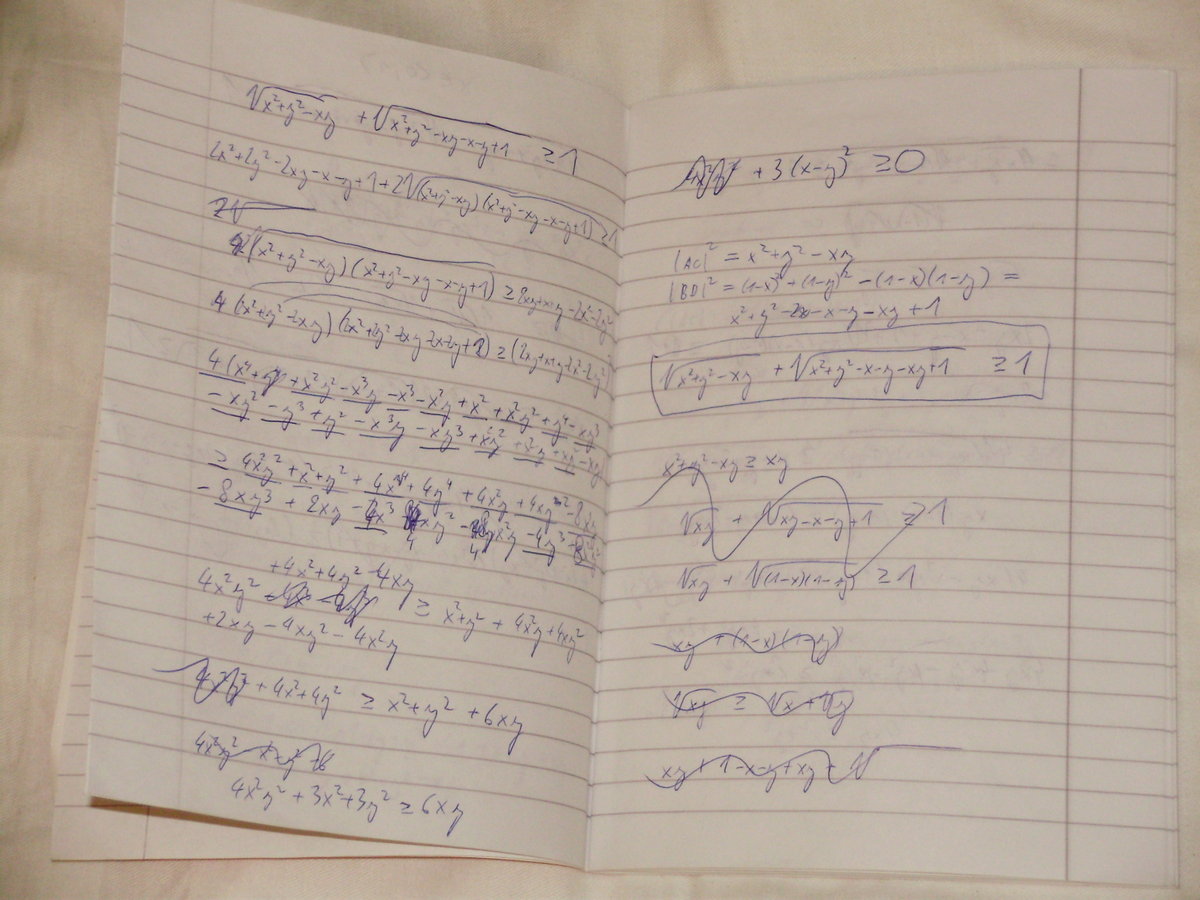 √(x²+y²-xy) + √(x²+y²-xy-x-y+1) ≥ 1
2x²+2y²-2xy-x-y+1+2√((x²+y²-xy)(x²+y²-xy-x-y+1)) ≥ 1
2√((x²+y²-xy)(x²+y²-xy-x-y+1)) ≥ 2xy+x+y-2x²-2y²
≥ (2xy+x+y-2x²-2y²)²
4(x⁴+ +x²y²-x³y-x³-x²y+x²+x²y²+y⁴-xy³
-xy²-y³+y²-x³y-xy³+x²y²+x²y+xy²-xy)
≥ 4x²y²+x²+y²+4x⁴+4y⁴+4x²y+4xy²-8x³y
-8xy³+2xy-4x³-4xy²-4x²y-4y³+8x²y²
+4x²+4y²-4xy
4x²y² ≥ x²+y²+4x²y+4xy²
+2xy-4xy²-4x²y
+4x²+4y² ≥ x²+y²+6xy
4x²y²+3x²+3y² ≥ 6xy
+3(x-y)² ≥ 0
|AC|² = x²+y²-xy
|BD|² = (1-x)²+(1-y)²-(1-x)(1-y) =
x²+y²-x-y-xy+1
√(x²+y²-xy) + √(x²+y²-x-y-xy+1) ≥ 1
x²+y²-xy ≥ xy
√xy + √(xy-x-y+1) ≥ 1
√xy + √((1-x)(1-y)) ≥ 1
xy+(1-x)(1-y)
√xy ≥ √x+√y
xy+1-x-y+xy+√